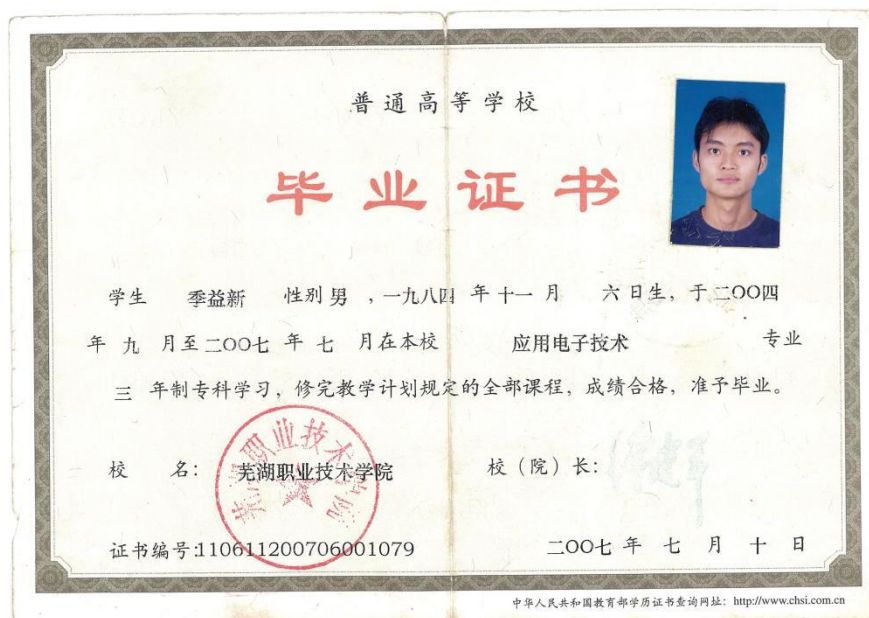 普通高等学校
毕业证书
学生 季益新 性别 男 ，一九八四 年 十一 月 六 日生，于 二〇〇四
年 九 月至 二〇〇七 年 七 月在本校 应用电子技术 专业
三 年制专科学习，修完教学计划规定的全部课程，成绩合格，准予毕业。
校 名： 芜湖职业技术学院
芜湖职业技术学院
校（院）长：
证书编号:110611200706001079
二〇〇七 年 七 月 十 日
中华人民共和国教育部学历证书查询网址：http://www.chsi.com.cn